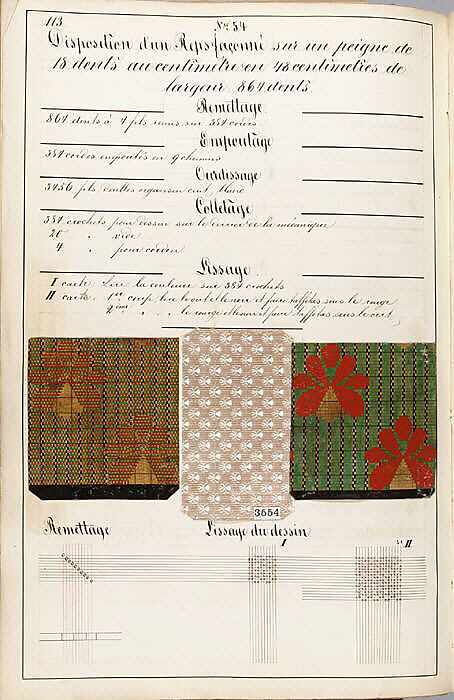 113
No. 54
Disposition d'un Reps façonné sur un peigne de
18 dents au centimètre en 48 centimètres de
largeur 864 dents.
Remettage
864 dents à 4 fils remis sur 384 cordes
Empoutage
384 cordes empoutés en 9 chemins
Ourdissage
3456 fils organsin cuit, blanc
Colletage
384 crochets pour dessin sur le derrière de la mécanique
20 " vide
4 " pour cordon
Lissage
I carte. Lire la couleur sur 384 crochets
II carte. 1er coup, lire le vert et le noir et faire taffetas sous le rouge
2ème " " le rouge et le noir et faire taffetas sous le vert
3554
Remettage Lissage du dessin
I II